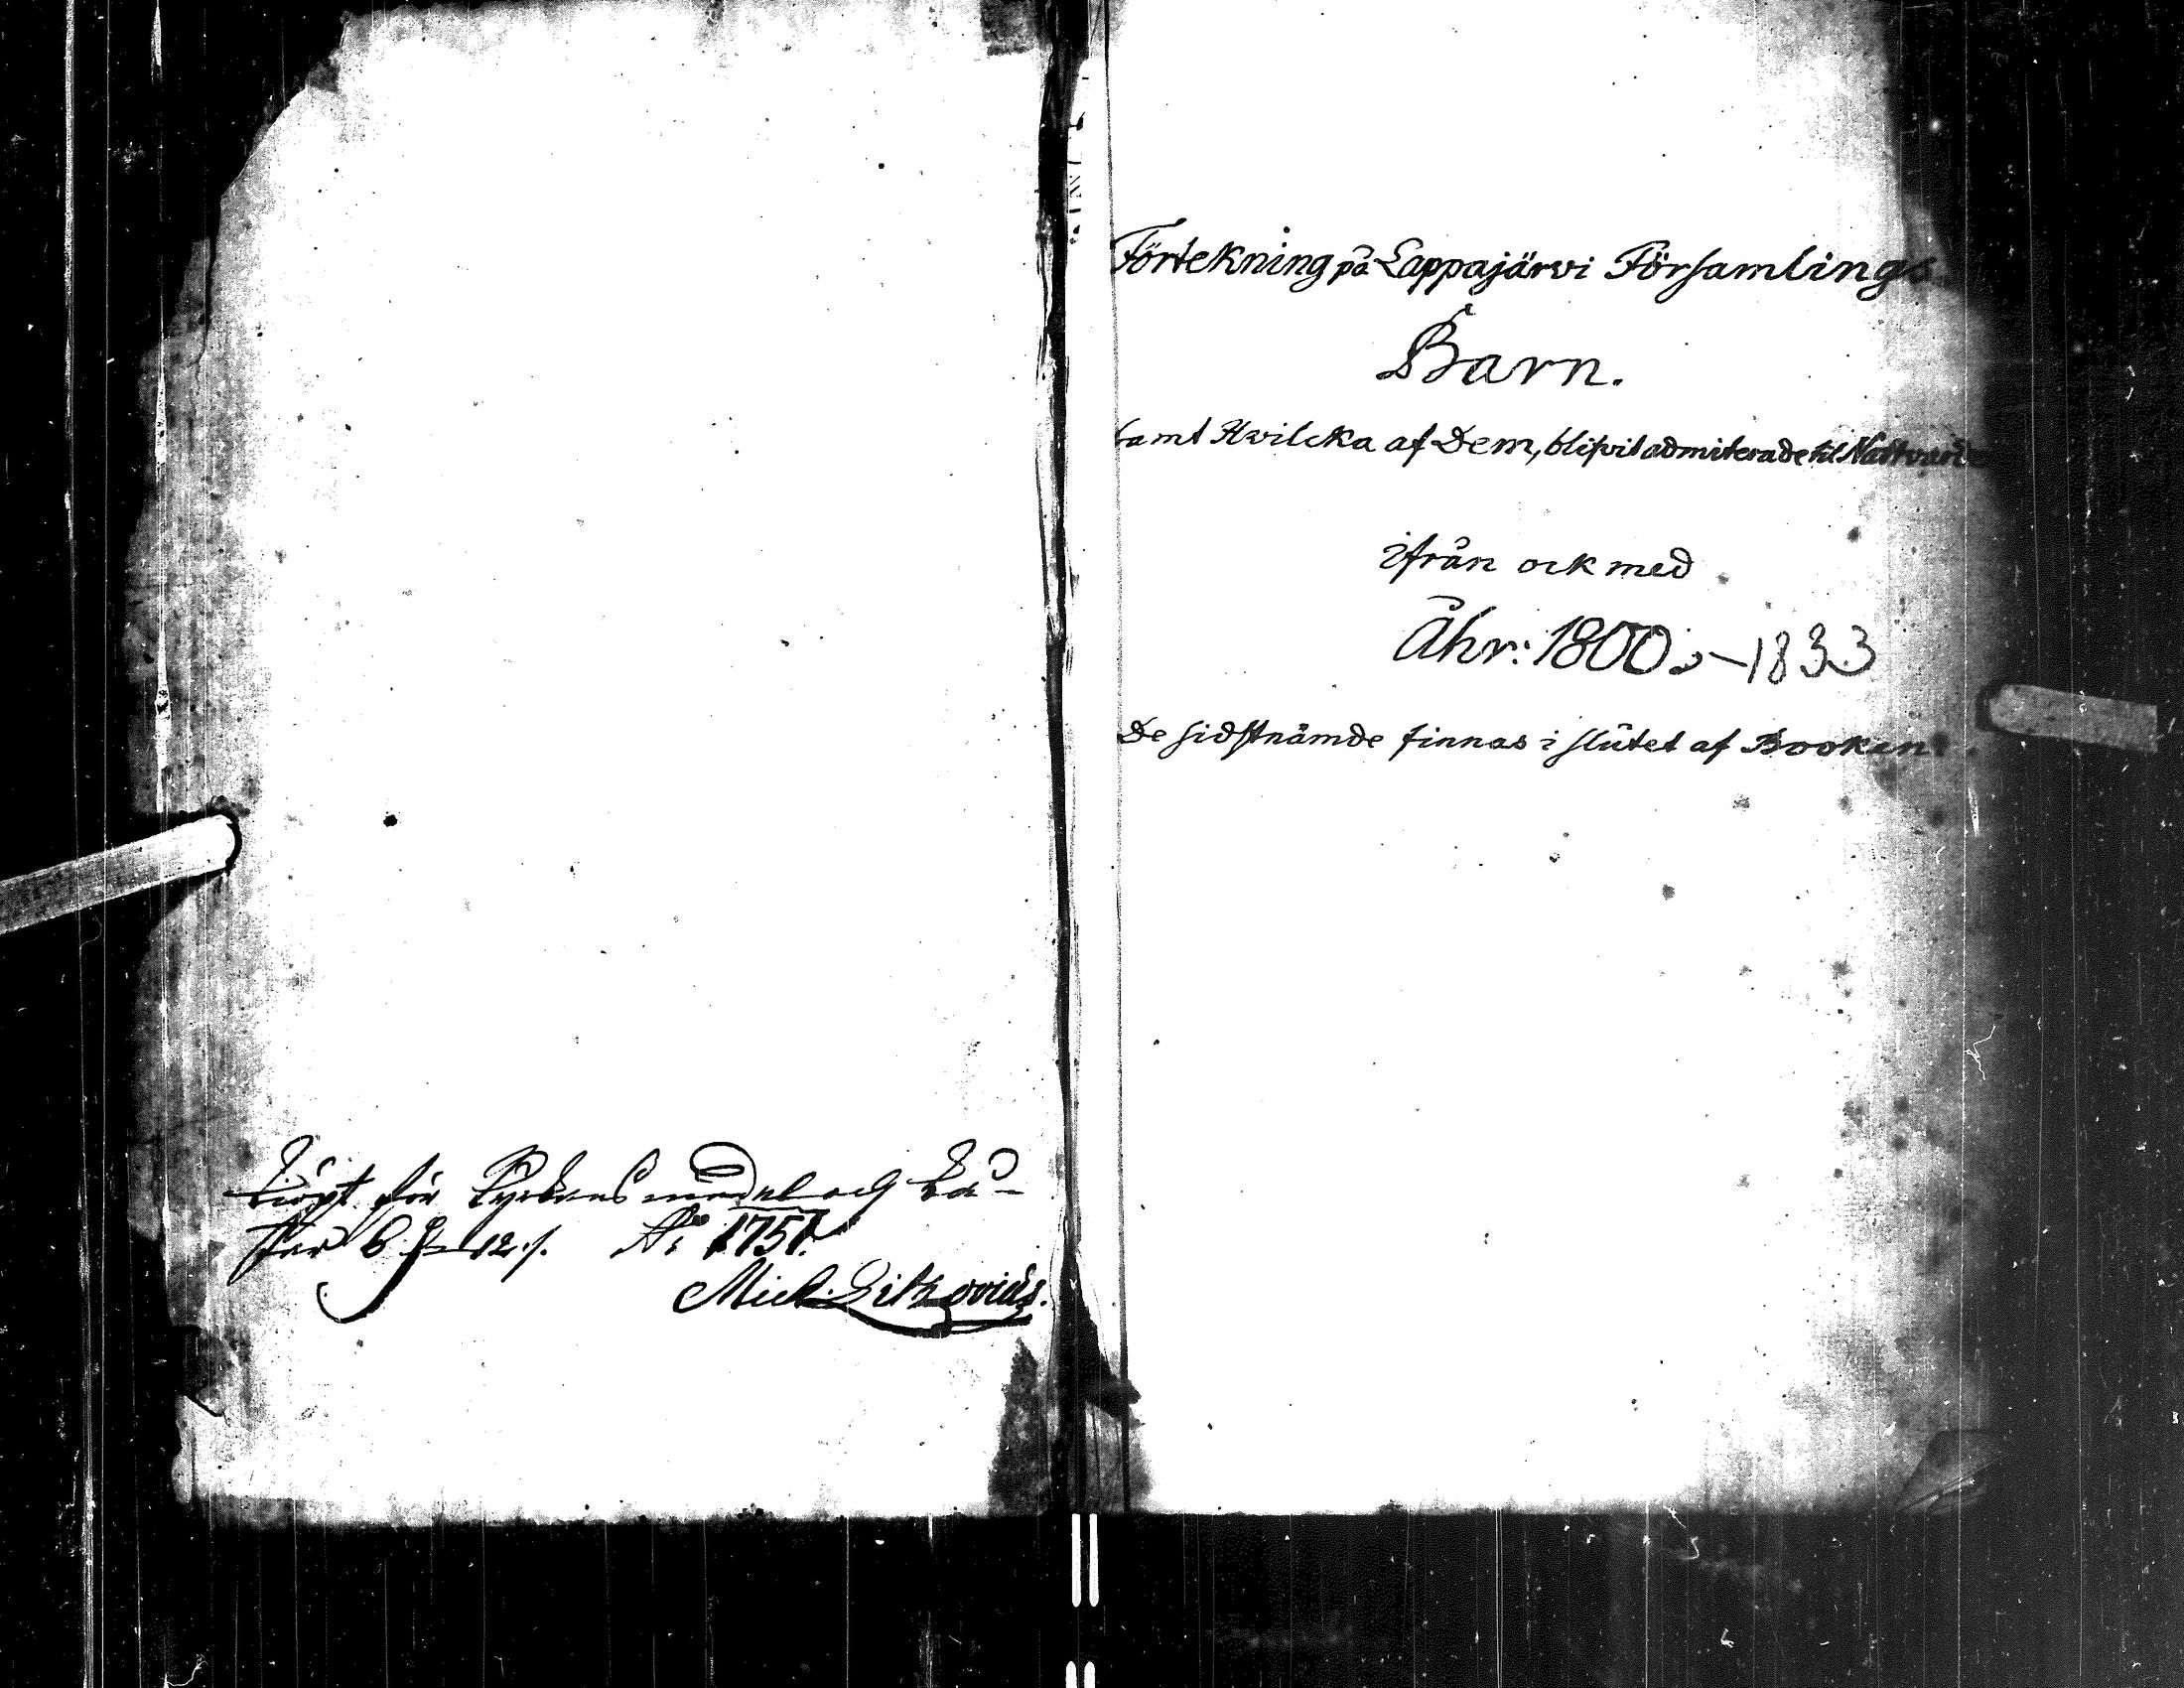 Kiöpt för Kyrkans medel och kå-
star 6 12 A:o 1751.
Mich. Lithovius.
Förtekning på Lappajärvi Församlings
Barn.
samt Hvilcka af Dem, blifvit admiterade til Nattvarde
ifrån ock med
Åhr: 1800. – 1833
De sidstnämde finnas i slutet af Booken